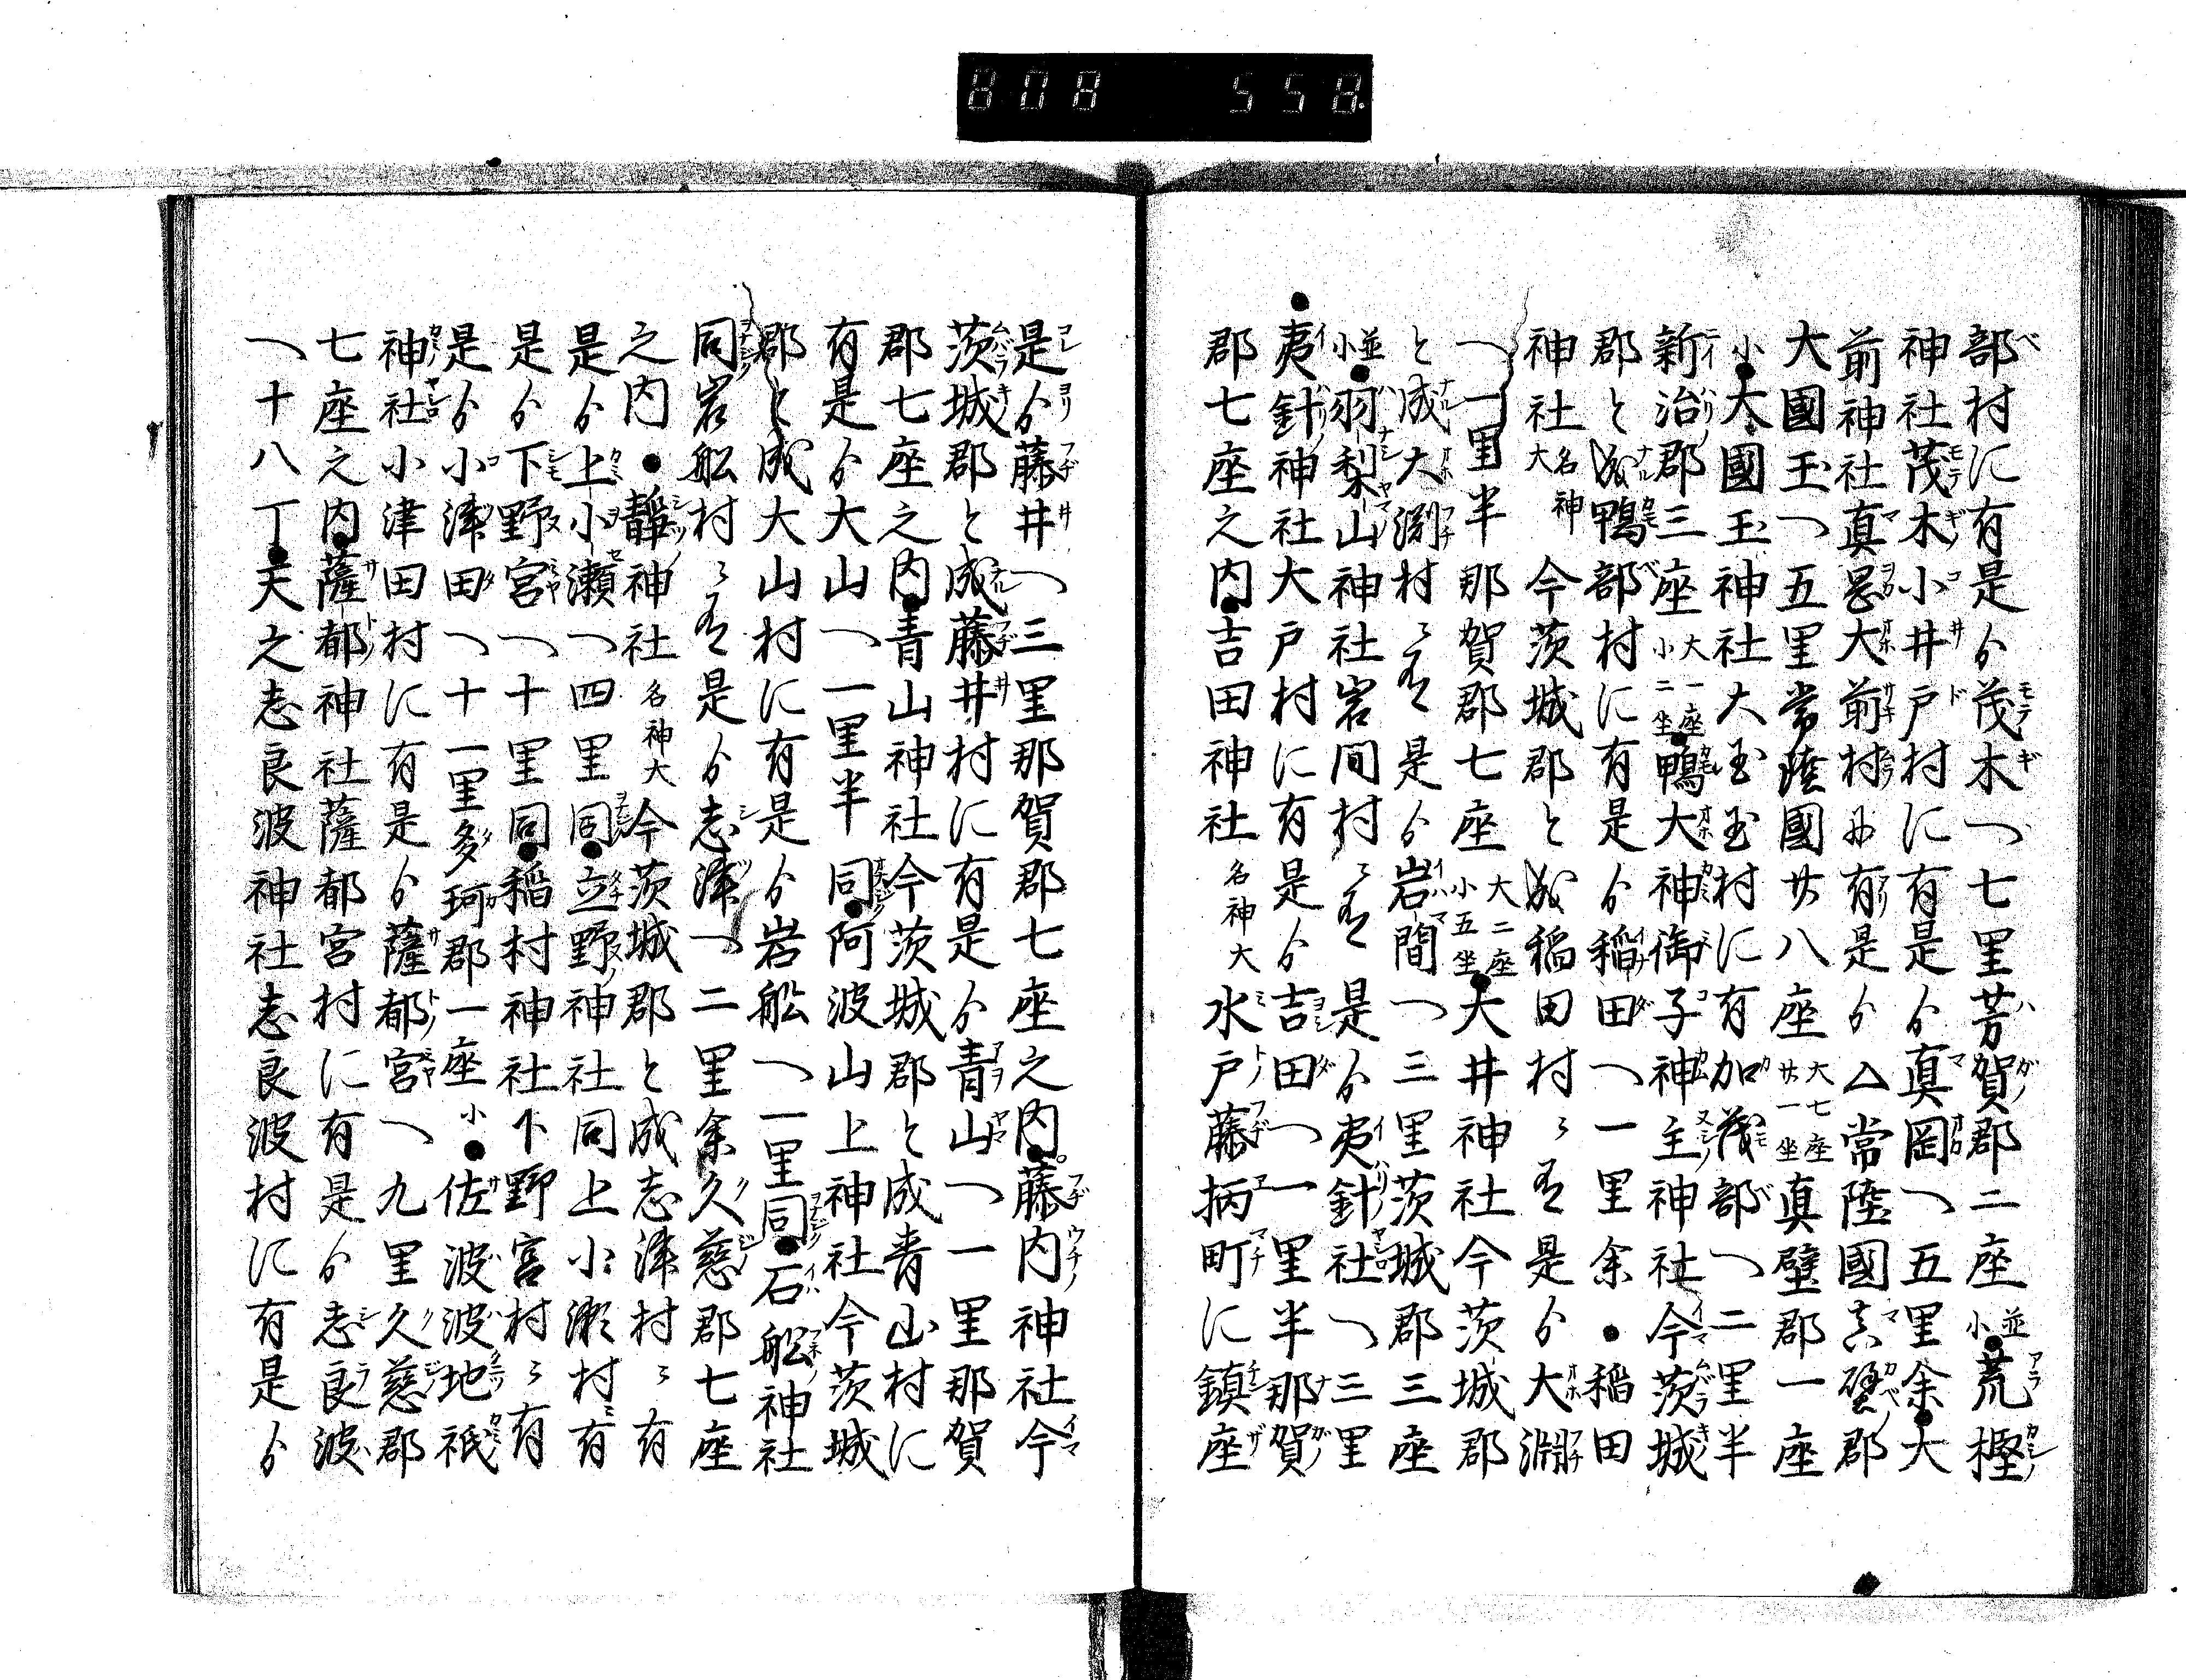 部村に有是ゟ茂木へ七里芳賀郡二座並小●荒樫
神社茂木小井戸村に有是ゟ真岡へ五里余●大
前神社真岡大前村ニ有是ゟ△常陸國真壁郡
大國玉へ五里常陸國廿八座大七座廿一坐真壁郡一座
小●大國玉神社大玉村に有加茂部へ二里半
新治郡三座大一座小二坐●鴨大神御子神主神社今茨城
郡と成鴨部村に有是ゟ稲田へ一里余●稲田
神社名神大今茨城郡と成稲田村ニ有是ゟ大渕
へ一里半那賀郡七座大二座小五坐●大井神社今茨城郡
と成大渕村ニ有是ゟ岩間へ三里茨城郡三座
並小●羽梨山神社岩间村ニ有是ゟ夷針社へ三里
●夷針神社大戸村に有是ゟ吉田へ一里半那賀
郡七座之内●吉田神社名神大水戸藤柄町に鎮座
是ゟ藤井へ三里那賀郡七座之内●藤内神社今
茨城郡と成藤井村に有是ゟ青山へ一里那賀
郡七座之内●青山神社今茨城郡と成青山村に
有是ゟ大山へ一里半同●阿波山上神社今茨城
郡と成大山村に有是ゟ岩船へ一里同●石船神社
同岩船村ニ有是ゟ志津へ二里余久慈郡七座
之内●靜神社名神大今茨城郡と成志津村ニ有
是ゟ上小瀬へ四里同●立野神社同上小瀬村ニ有
是ゟ下野宮へ十里同●稲村神社下野宮村ニ有
是ゟ小津田へ十一里多珂郡一座小●佐波波地祇
神社小津田村に有是ゟ薩都宮へ九里久慈郡
七座之内●薩都神社薩都宮村に有是ゟ志良波
へ十八丁●天之志良波神社志良波村に有是ゟ